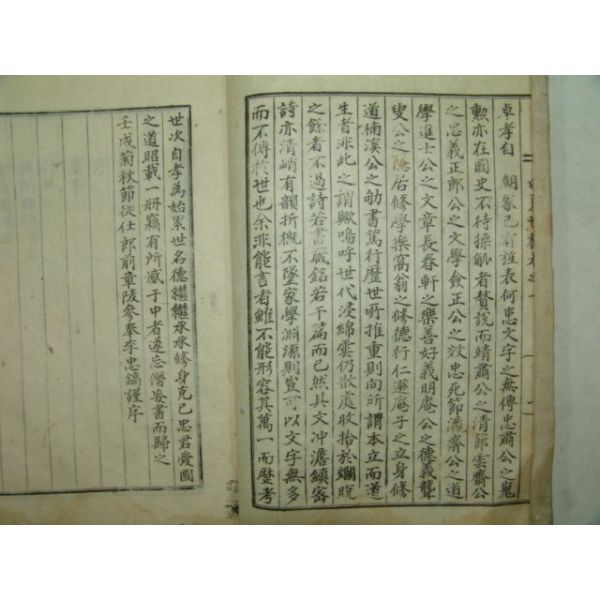 卓孝自朝家已有旌表何忠文字之無傳忠肅公之鬼
勲亦在國史不待操觚者贅說而靖肅公之清節雲齋公
之忠義正郎公之文學僉正公之效忠死節瀛齋公之道
學進士公之文章長春軒之樂善好義明庵公之德義聾
叟公之隐居修學樂窩翁之修德行仁遯庵子之立身修
道楠溪公之劬書篤行歷世所推重則向所謂本立而道
生者非此之謂歟嗚呼世代浸綿雲仍散處收拾於爛脫
之餘者不過詩若書箴銘若干篇而已然其文冲澹縝密
詩亦清峭有韻折槪不墜家學淵源則豈可以文字無多
而不傳於世也余非能言者雖不能形容其萬一而歷考
世次自孝為始累世名德繼繼承承修身克己忠君愛國
之道昭載一册竊有所感于中者遂忘僭妄書而歸之
壬戌菊秋節從仕郎前章陵參奉李忠鎬謹序